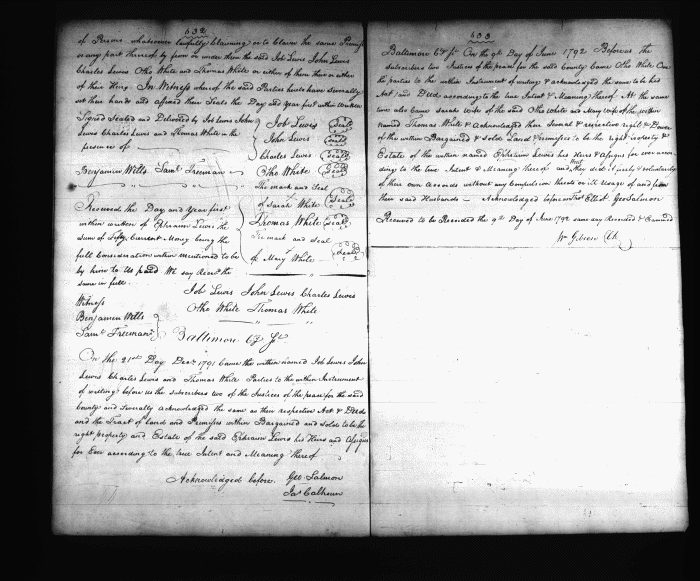 632
of Persons whatsoever lawfully Claiming or to Claim the same Premises
or any part thereof by from or under them the said Job Lewis John Lewis
Charles Lewis Otho White and Thomas White or either of them their or either
of their Heirs In Witness whereof the said Parties hereto have severally
set their hands and affixed their Seals the Day and Year first within written
Signed Sealed and Delivered by Job Lewis John
Lewis Charles Lewis and Thomas White in the
presence of
Benjamin Wells Saml. Freeman
Job Lewis Seal
John Lewis Seal
Charles Lewis Seal
Otho White Seal
The mark and Seal
of Sarah White Seal
Thomas White Seal
The mark and Seal
of Mary White Seal
Received the Day and Year first
within written of Ephraim Lewis the
sum of fifty Current Money being the
full Consideration within mentioned to be
by him to Us paid We say Recd. the
same in full
Job Lewis John Lewis Charles Lewis
Otho White Thomas White
Witness
Benjamin Wells
Saml. Freeman
Baltimore Cy. Sc
On the 21st Day Decr. 1791 Came the within named Job Lewis John
Lewis Charles Lewis and Thomas White Parties to the within Instrument
of writing before us the subscribers two of the Justices of the peace for the said
County and severally acknowledged the same as their respective Act & Deed
and the Tract of Land and Premises within Bargained and Sold to be the
right property and Estate of the said Ephraim Lewis his Heirs and Assigns
for Ever according to the true Intent and Meaning thereof
Acknowledged before. Geo Salmon
Ja Calhoun
633
Baltimore Cy. Sc On the 9th Day of June 1792 Before us the
subscribers two Justices of the peace for the said County Came Otho White One
the parties to the within Instrument of writing & acknowledged the same to be his
Act and Deed according to the true Intent & Meaning thereof At the same
time also came Sarah wife of the said Otho White and Mary wife of the within
named Thomas White & Acknowledged their several & respective right & Dower
of the within Bargained & Sold Land & premises to be the right property &
Estate of the within named Ephraim Lewis his Heirs & Assigns for ever accor-
ding to the true Intent & Meaning thereof and that they did it freely & voluntarily
of their own Accords without any Compulsion threats or ill Usage of and from
their said Husbands Acknowledged before Geo Salmon
Received to be Recorded the 9th Day of June 1792 same day Recorded & Examined
Wm Gibson Clk